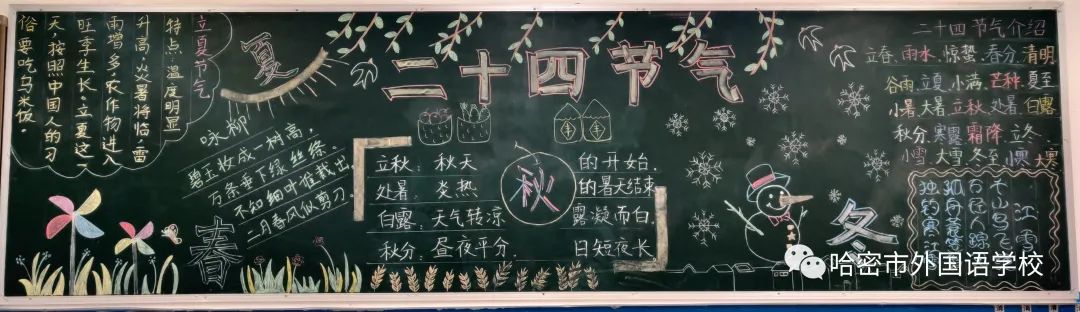 二十四节气
夏
立夏节气
特点：温度明显
升高，炎暑将临，雷
雨增多，农作物进入
旺季生长。立夏这一
天，按照中国人的习
俗要吃乌米饭。
春
咏柳
碧玉妆成一树高，
万条垂下绿丝绦。
不知细叶谁裁出，
二月春风似剪刀。
秋
立秋：秋天的开始.
处暑：炎热的暑天结束
白露：天气转凉，露凝而白.
秋分：昼夜平分.日短夜长
冬
二十四节气介绍
立春、雨水、惊蛰、春分、清明
谷雨、立夏、小满、芒种、夏至
小暑、大暑、立秋、处暑、白露
秋分、寒露、霜降、立冬、
小雪、大雪、冬至、小寒、大寒
江雪
千山鸟飞
万径人踪
孤舟蓑笠
独钓寒江
哈密市外国语学校